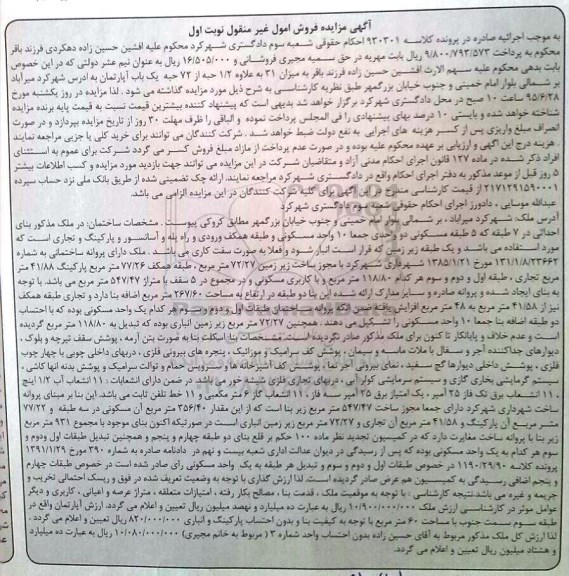 آگهی مزایده فروش امول غیر منقول نوبت اول
به موجب اجرائیه صادره در پرونده کلاسه ۹۳۰۳۰۱ احکام حقوقی شعبه سوم دادگستری شهرکرد محکوم علیه افشین حسین زاده دهکردی فرزند باقر
محکوم به پرداخت ۹/۸۰۰/۷۹۳/۵۷۳ ریال بابت مهریه در حق سمیه مجیری فروشانی و ۱۶/۵۰۵/۰۰۰ ریال به عنوان نیم عشر دولتی که در این خصوص
بابت بدهی محکوم علیه سهم الارث افشین حسین زاده فرزند باقر به میزان ۳۱ به علاوه ۱/۲ حبه از ۷۲ حبه یک باب آپارتمان به آدرس شهرکرد میرآباد
بر شمالی بلوار امام خمینی و جنوب خیابان بزرگمهر طبق نظریه کارشناسی به شرح ذیل مورد مزایده گذاشته می شود . لذا مزایده در روز یکشنبه مورخ
۹۵/۶/۲۸ ساعت ۱۰ صبح در محل دادگستری شهرکرد برگزار خواهد شد بدیهی است که پیشنهاد کننده بیشترین قیمت نسبت به قیمت پایه برنده مزایده
شناخته خواهد شده و بایستی ۱۰ درصد بهای پیشنهادی را فی المجلس پرداخت نموده و الباقی را ظرف مهلت ۳۰ روز از تاریخ مزایده بپردازد و در صورت
انصراف مبلغ واریزی پس از کسر هزینه های اجرایی به نفع دولت ضبط خواهد شد . شرکت کنندگان می توانند برای خرید کلی یا جزیی مراجعه نمایند
. هزینه درج این آگهی و ارزیابی بر عهده محکوم علیه بوده و در صورت عدم پرداخت از مازاد مبلغ فروش کسر می گردد شرکت برای عموم به استثنای
افراد ذکر شده در ماده ۱۲۷ قانون اجرای احکام مدنی آزاد و متقاضیان شرکت در این مزایده می توانند جهت بازدید مورد مزایده و کسب اطلاعات بیشتر
۵ روز قبل از موعد مذکور به دفتر اجرای احکام واقع در دادگستری شهرکرد مراجعه نمایند. ارائه چک تضمینی شده از طریق بانک ملی نزد حساب سپرده
۲۱۷۱۲۹۱۵۹۰۰۰۱ از قیمت کارشناسی مندرج در این آگهی برای کلیه شرکت کنندگان در این مزایده الزامی می باشد.
عبدالله موسایی ، دادورز اجرای احکام حقوقی شعبه سوم دادگستری شهرکرد
آدرس ملک: شهرکرد میرآباد ، بر شمالی بلوار امام خمینی و جنوب خیابان بزرگمهر مطابق کروکی پیوست. مشخصات ساختمان: در ملک مذکور بنای
احداثی در ۷ طبقه که ۵ طبقه مسکونی دو واحدی جمعا ۱۰ واحد مسکونی و طبقه همکف ورودی و راه پله و آسانسور و پارکینگ و تجاری است که
مورد استفاده می باشد و یک طبقه زیر زمین که قرار است انبار شود و فعلا به صورت سفت کاری می باشد . ملک دارای پروانه ساختمانی به شماره
۱۳۱/۱/۸/۲۳۶۶۲ مورخ ۱۳۸۵/۱/۲۱ شهرداری شهرکرد با مجوز ساخت زیر زمین ۷۲/۲۷ متر مربع ، طبقه همکف ۷۷/۲۶ متر مربع پارکینگ ۴۱/۸۸ متر
مربع تجاری ، طبقه اول و دوم و سوم هر کدام ۱۱۸/۸۰ متر مربع و با کاربری مسکونی و در مجموع در ۵ سقف با متراژ ۵۴۷/۴۷ متر مربع می باشد. با توجه
به بنای ایجاد شده و پروانه صادره و سایز مدارک ارائه شده این بنا دو طبقه در ارتفاع به مساحت ۲۶۷/۶۰ متر مربع اضافه بنا دارد و تجاری طبقه همکف
نیز از ۴۱/۵۸ متر مربع به ۴۸ متر مربع افزایش یافته ضمن آنکه پروانه ساختمان طبقات اول و دوم و سوم هر کدام یک واحد مسکونی بوده که با احتساب
دو طبقه اضافه بنا جمعا ۱۰ واحد مسکونی را تشکیل می دهند . همچنین ۷۲/۲۷ متر مربع زیر زمین انباری بوده که تبدیل به ۱۱۸/۸۰ متر مربع گردیده
است و عدم خلاف و پایانکار تا کنون برای ملک مذکور صادر نگردیده است. مشخصات بنا: اسکلت بنا به صورت بتن آرمه ، پوشش سقف تیرچه و بلوک ،
دیوارهای جداکننده آجر و سفال با ملات ماسه و سیمان ، پوشش کف سرامیک و موزائیک ، پنجره های بیرونی فلزی ، دربهای داخلی چوبی با چهار چوب
فلزی ، پوشش داخلی دیوارها گچ سفید ، نمای بیرونی آجر نما ، پوشش کف آشپزخانه ها و سرویس حمام و توالت سرامیک و پوشش بدنه آنها کاشی ،
سیستم گرمایشی بخاری گازی و سیستم سرمایشی کولر آبی ، دربهای تجاری فلزی شیشه خور می باشد. در ضمن دارای انشعابات : ۱۱ انشعاب آب ۱/۲ اینچ
، ۱۱ انشعاب برق تک فاز ۲۵ آمپر ، یک امتیاز برق ۲۵ آمپر سه فاز ، ۱۱ انشعاب گاز ۶ متر مکعبی و ۱۱ خط تلفن ثابت می باشد. این بنا بر مبنای پروانه
ساخت شهرداری شهرکرد دارای جمعا مجوز ساخت ۵۴۷/۴۷ متر مربع زیر بنا است که از این مقدار ۳۵۶/۴۰ متر مربع آن مسکونی در سه طبقه و ۷۷/۲۲
متر مربع آن پارکینگ و ۴۱/۵۸ متر مربع آن تجاری و ۷۲/۲۷ متر مربع زیر زمین انباری است در صورتیکه اکنون بنای موجود با مجموع ۹۳۱ متر مربع
زیر بنا با پروانه ساخت مغایرت دارد که در کمیسیون تجدید نظر ماده ۱۰۰ حکم بر قلع بنای دو طبقه چهارم و پنجم و همچنین تبدیل طبقات اول ودوم و
سوم هر کدام به یک واحد مسکونی بوده که پس از رسیدگی در دیوان عدالت اداری شعبه بیست و نهم در دادنامه صادره به شماره ۳۹۰ مورخ ۱۳۹۱/۱/۲۹
پرونده کلاسه ۱۱۹۰/۲۹/۹۰ در خصوص طبقات اول و دوم و سوم و تبدیل هر طبقه به یک واحد مسکونی رای صادر شده است در خصوص طبقات چهارم
و پنجم اضافی رسیدگی به کمیسیون هم عرض صادر گردیده است. لذا ارزش گذاری با توجه به وضعیت تعریف شده در فوق و ریسک احتمالی تخریب و
جریمه و غیره می باشد.نتیجه کارشناسی : با توجه به موقعیت ملک ، قدمت بنا ، مصالح بکار رفته ، امتیازات متعلقه ، متراژ عرصه و اعیانی ، کاربری و دیگر
عوامل موثر در کارشناسی ارزش ملک ۱۰/۹۰۰/۰۰۰/۰۰۰ ریال به عبارت ده میلیارد و نهصد میلیون ریال تعیین و اعلام می گردد. ارزش آپارتمان واقع در
طبقه سوم سمت جنوب با مساحت ۶۰ متر مربع با توجه به کیفیت بنا و بدون احتساب پارکینگ و انباری ۸۲۰/۰۰۰/۰۰۰ ریال تعیین و اعلام می گردد .
لذا ارزش کل ملک مذکور مربوط به آقای حسین زاده بدون احتساب واحد شماره ۳ (مربوط به خانم مجیری) ۱۰/۰۸۰/۰۰۰/۰۰۰ ریال به عبارت ده میلیارد و
و هشتاد میلیون ریال تعیین و اعلام می گردد.